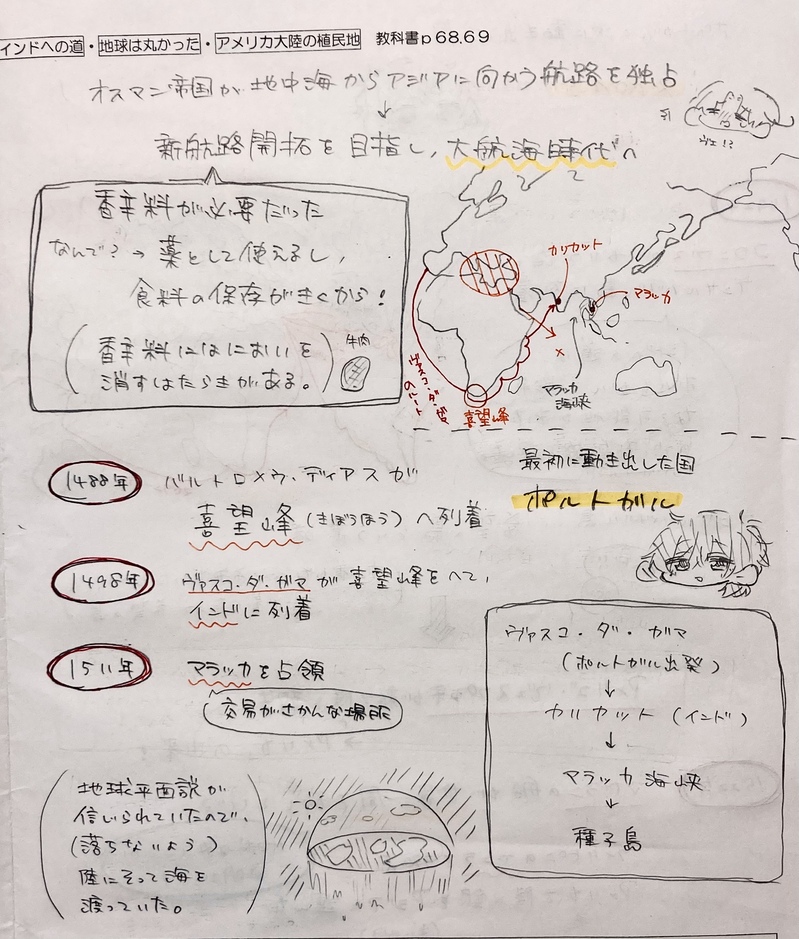 インドへの道・地球は丸かった・アメリカ大陸の植民地 教科書p68,69
オスマン帝国が地中海からアジアに向かう航路を独占
↓
新航路開拓を目指し、大航海時代へ
ヴェ!?
香辛料が必要だった
なんで?→薬として使えるし、
食料の保存がきくから!
(香辛料にはにおいを
消すはたらきがある。)
牛肉
カリカット
マラッカ
マラッカ
海峡
ヴァスコ・ダ・ガマ
のルート
喜望峰
×
最初に動き出した国
ポルトガル
1488年 バルトロメウ・ディアスが
喜望峰(きぼうほう)へ到着
1498年 ヴァスコ・ダ・ガマが喜望峰をへて、
インドに到着
1511年 マラッカを占領
交易がさかんな場所
ヴァスコ・ダ・ガマ
(ポルトガル出発)
↓
カリカット(インド)
↓
マラッカ海峡
↓
種子島
(地球平面説が
信じられていたので、
(落ちないよう)
陸にそって海を
渡っていた。)